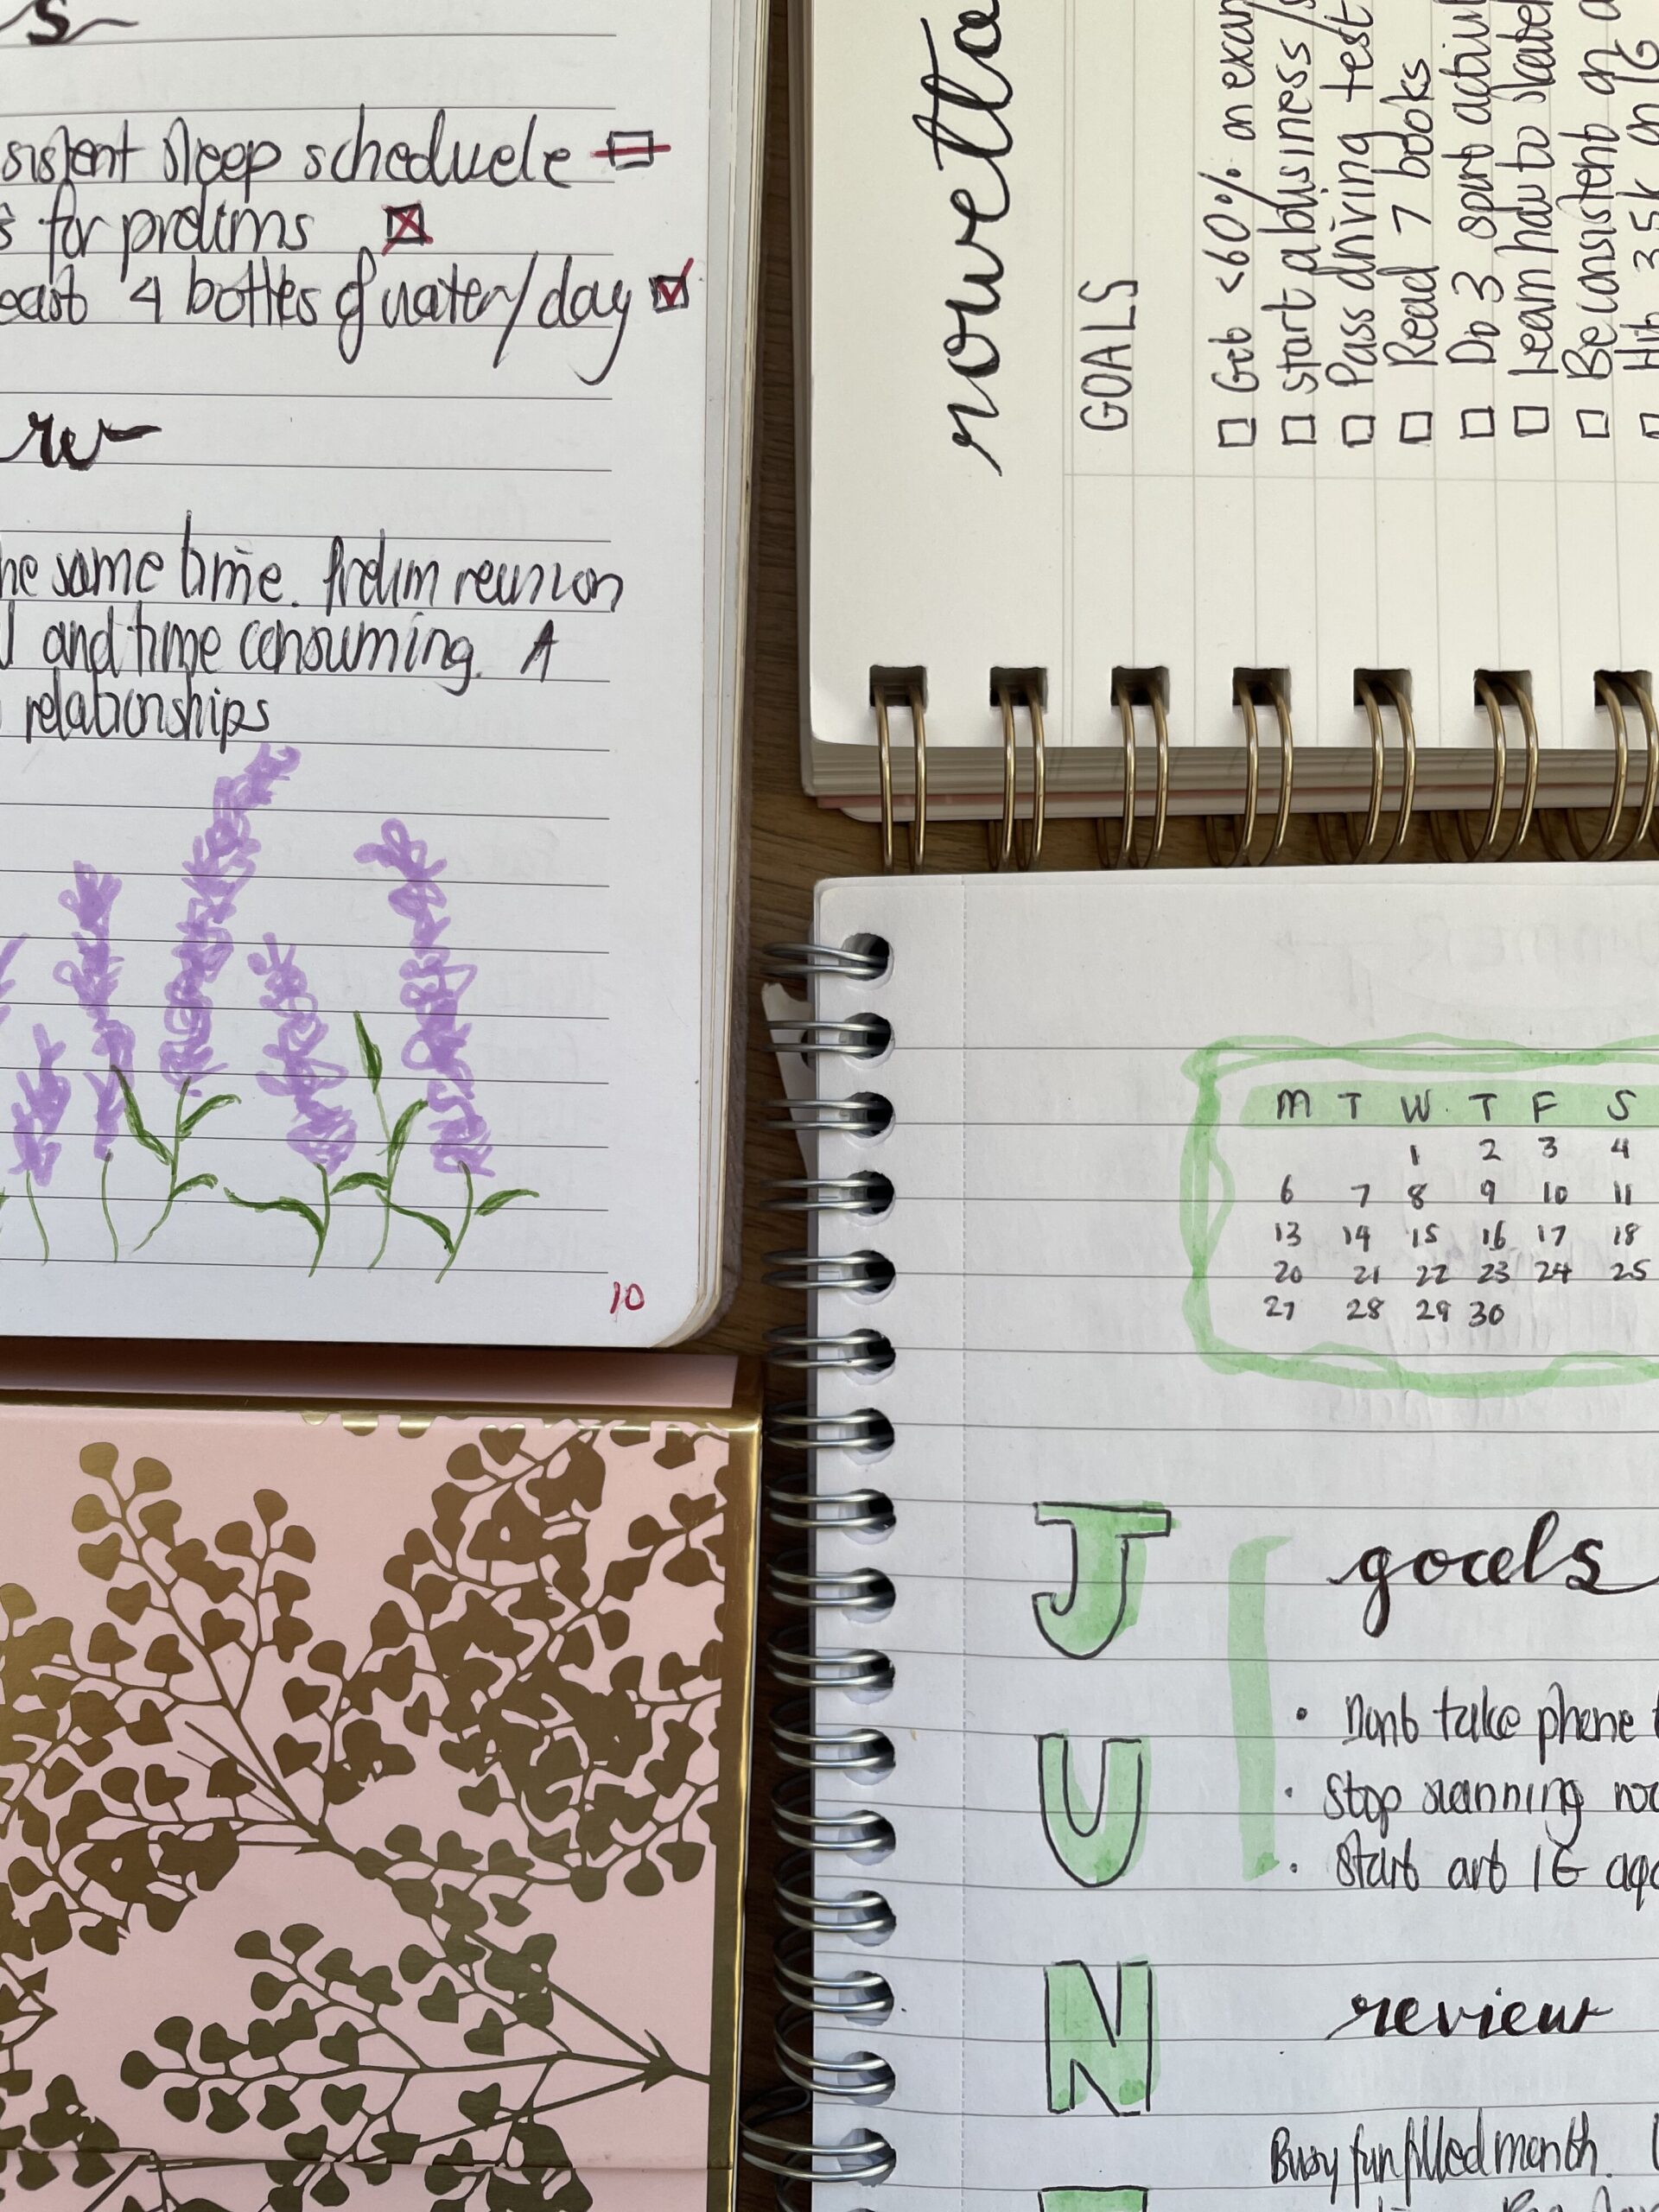 s
sistent sleep scheduele
for prelims
east 4 bottles of water/day
rw
he same time. Prelim reunion
and time consuming. A
relationships
10
GOALS
Get <60% on exam
Start a business/s
Pass driving test
Read 7 books
Do 3 spurt activi
Learn how to skate
Be consistent on a
Hit 3.5K on IG
M T W T F S
1 2 3 4
6 7 8 9 10 11
13 14 15 16 17 18
20 21 22 23 24 25
27 28 29 30
JUN
goals
• Dont take phone t
• Stop scanning
• Start art IG aga
review
Busy fun filled month.